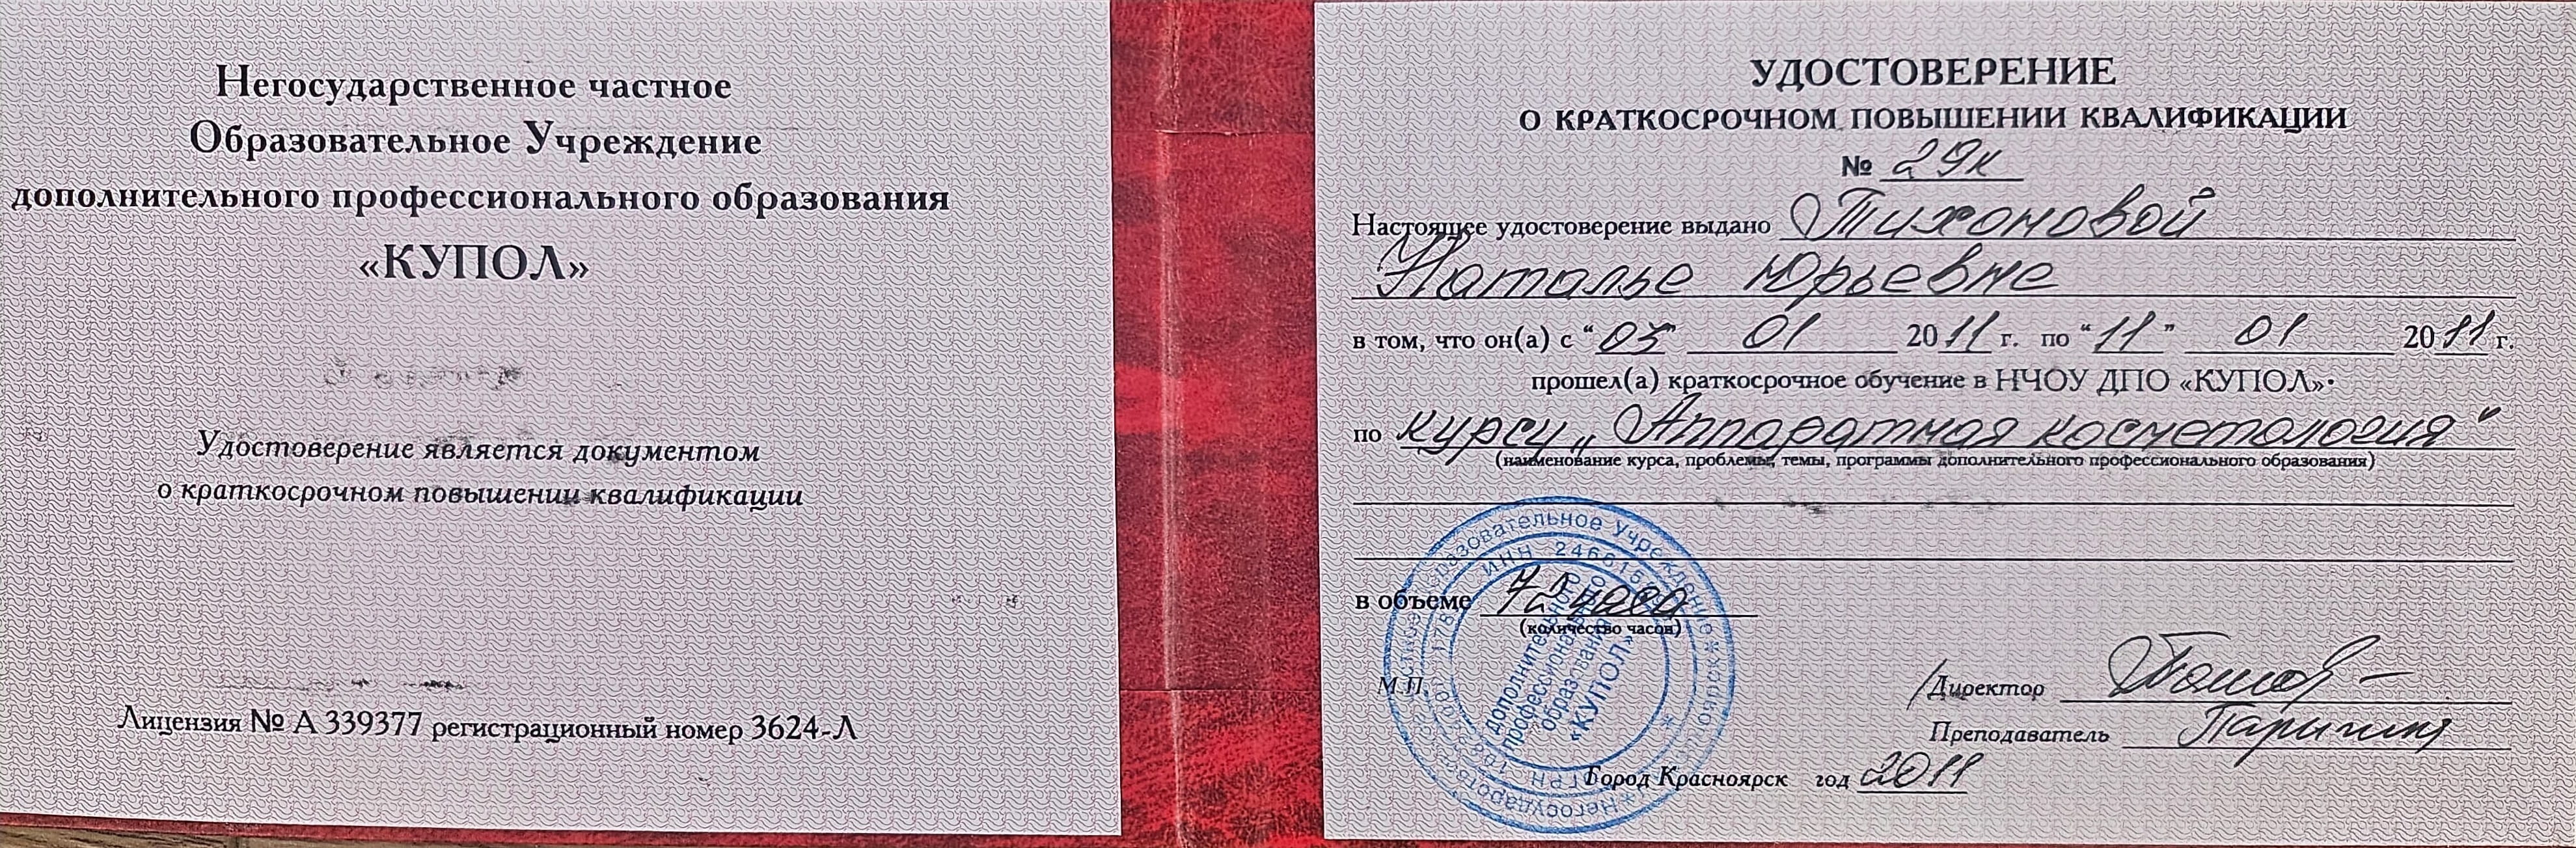 Негосударственное частное
Образовательное Учреждение
дополнительного профессионального образования
«КУПОЛ»
Удостоверение является документом
о краткосрочном повышении квалификации
Лицензия № А 339377 регистрационный номер 3624-Л
УДОСТОВЕРЕНИЕ
О КРАТКОСРОЧНОМ ПОВЫШЕНИИ КВАЛИФИКАЦИИ
№ 29к
Настоящее удостоверение выдано Тихоновой
Наталье Юрьевне
в том, что он(а) с “03” 01 2011 г. по “11” 01 2011 г.
прошел(а) краткосрочное обучение в НЧОУ ДПО «КУПОЛ»
по курсу „Аппаратная косметология“
(наименование курса, проблемы, темы, программы дополнительного профессионального образования)
в объеме 72 часа
(количество часов)
М.П.
Директор
Преподаватель
Город Красноярск год 2011
Негосударственное частное Образовательное Учреждение
ИНН
дополнительного
профессионального
образования
«КУПОЛ»